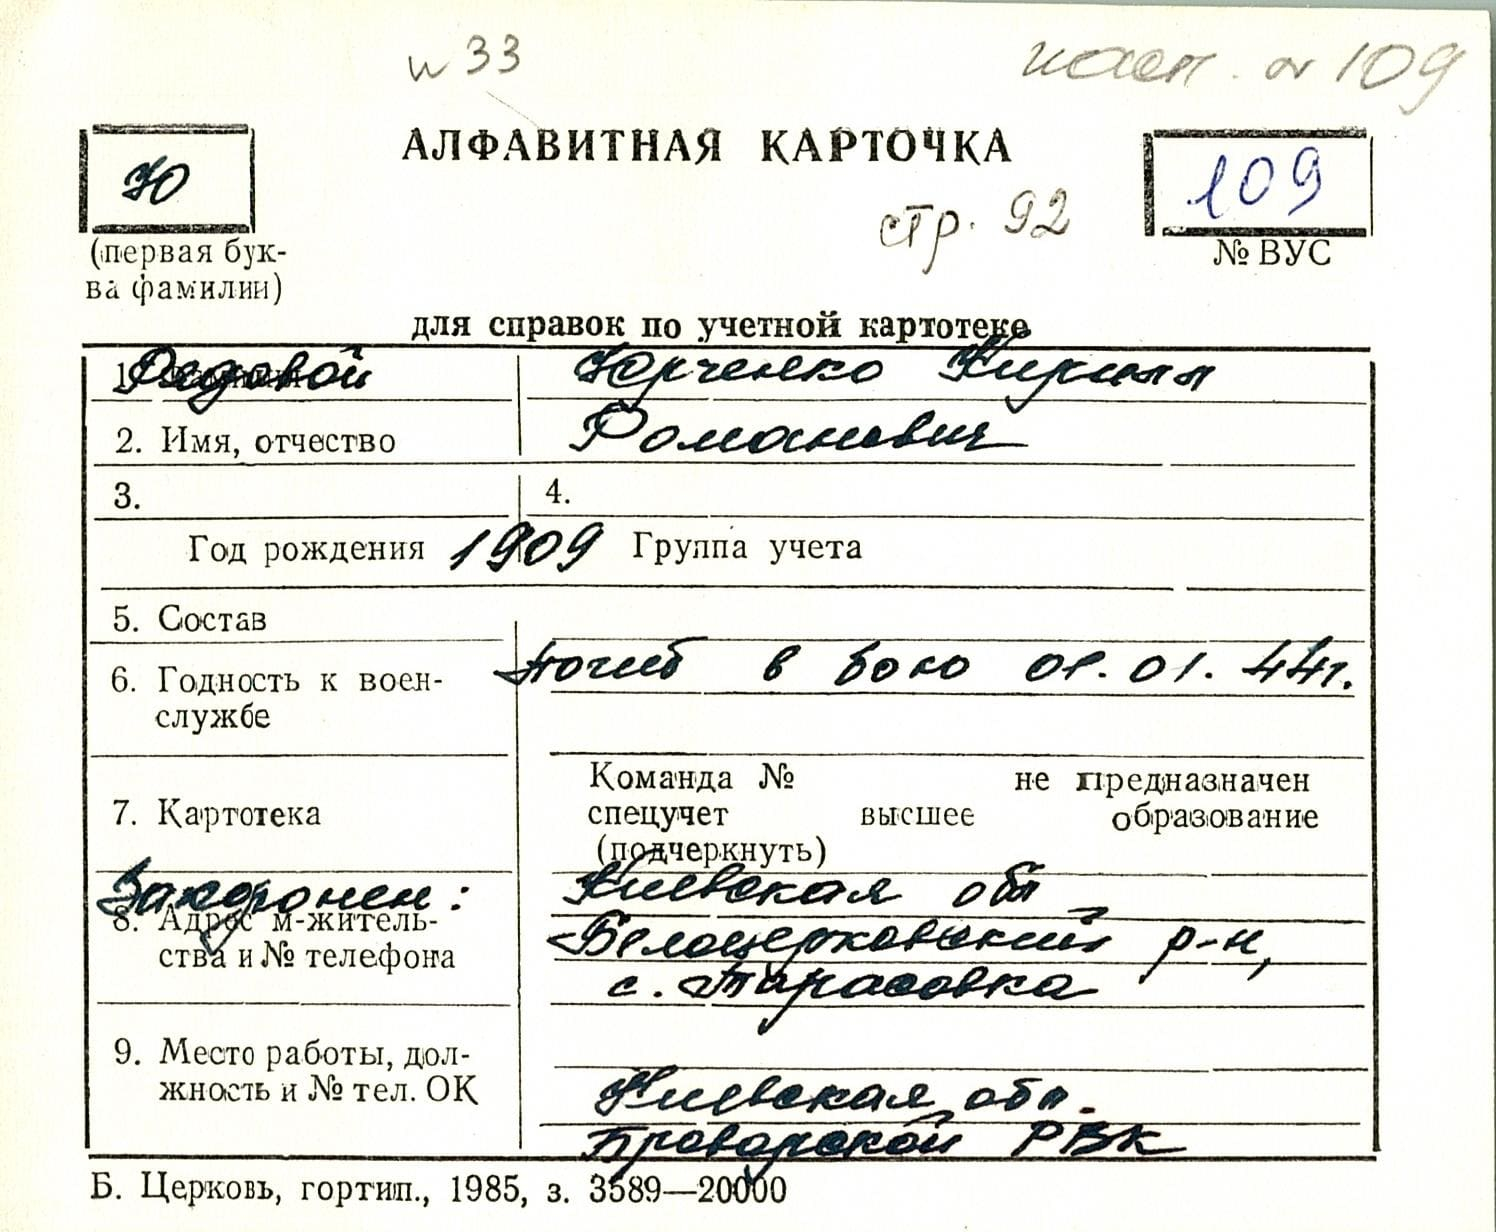 и 33
пасп. № 109
АЛФАВИТНАЯ КАРТОЧКА
Ю
109
стр. 92
(первая бук-
ва фамилии)
№ ВУС
для справок по учетной картотеке
1. Рядовой Юрченко Кирилл
2. Имя, отчество Романович
3. 4.
Год рождения 1909 Группа учета
5. Состав
6. Годность к воен-
службе
Погиб в бою 01.01.44г.
7. Картотека
Команда № не предназначен
спецучет высшее образование
(подчеркнуть)
Захоронен: Киевская обл
8. Адрес м-житель-
ства и № телефона
Белоцерковский р-н,
с. Тарасовка
9. Место работы, дол-
жность и № тел. ОК
Киевская обл.
Броварской РВК
Б. Церковь, гортип., 1985, з. 3589—20000